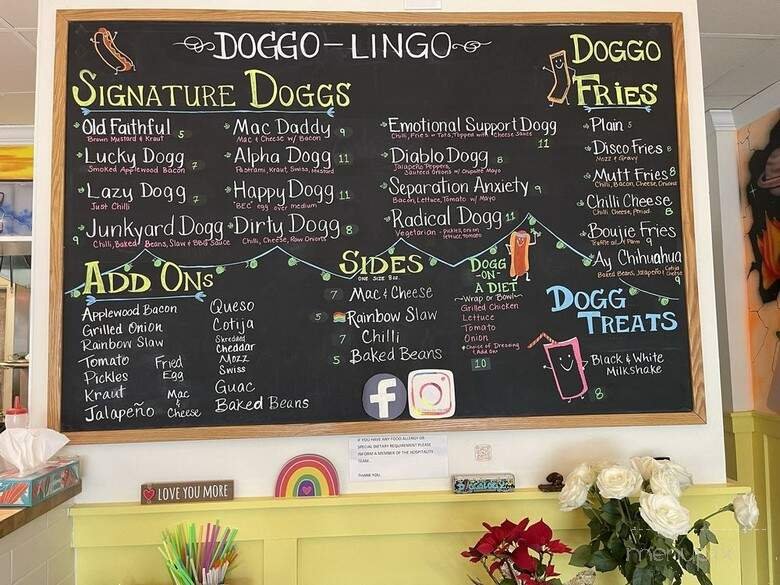 DOGGO-LINGO
SIGNATURE DOGGS
Old Faithful 5
Brown Mustard & Kraut
Lucky Dogg 7
Smoked Applewood Bacon
Lazy Dogg 7
Just Chili
Junkyard Dogg 9
Chili, Baked Beans, Slaw & BBQ Sauce
Mac Daddy 9
Mac & Cheese w/ Bacon
Alpha Dogg 11
Pastrami, Kraut, Swiss, Mustard
Happy Dogg 11
"BEC" egg over medium
Dirty Dogg 8
Chili, Cheese, Raw Onions
Emotional Support Dogg 11
Chili, Fries or Tots, Topped with Cheese Sauce
Diablo Dogg 8
Jalapeño Peppers,
Sauteed Onions w/ Chipotle Mayo
Separation Anxiety 9
Bacon, Lettuce, Tomato w/ Mayo
Radical Dogg 11
Vegetarian - pickles, onion
lettuce, tomato
DOGGO
FRIES
Plain 5
Disco Fries 8
Mozz & Gravy
Mutt Fries 8
Chili, Bacon, Cheese, Onions
Chili Cheese 8
Chili, Cheese,
Boujie Fries 9
Truffle oil & Parm
Ay Chihuahua 9
Baked Beans, Jalapeño & Cotija
Cheese
ADD ONS
Applewood Bacon
Grilled Onion
Rainbow Slaw
Tomato
Pickles
Kraut
Jalapeño
Fried
Egg
Mac
&
Cheese
Queso
Cotija
Shredded
Cheddar
Mozz
Swiss
Guac
Baked Beans
SIDES
ONE SIZE 8 oz.
7 Mac & Cheese
5 Rainbow Slaw
7 Chili
5 Baked Beans
DOGG
-ON-
A DIET
~Wrap or Bowl~
Grilled Chicken
Lettuce
Tomato
Onion
Choice of Dressing
& Add On
10
DOGG
TREATS
Black & White
Milkshake
8
f
IF YOU HAVE ANY FOOD ALLERGY OR
SPECIAL DIETARY REQUIREMENT PLEASE
INFORM A MEMBER OF THE HOSPITALITY
TEAM...
THANK YOU.
LOVE YOU MORE
menupix